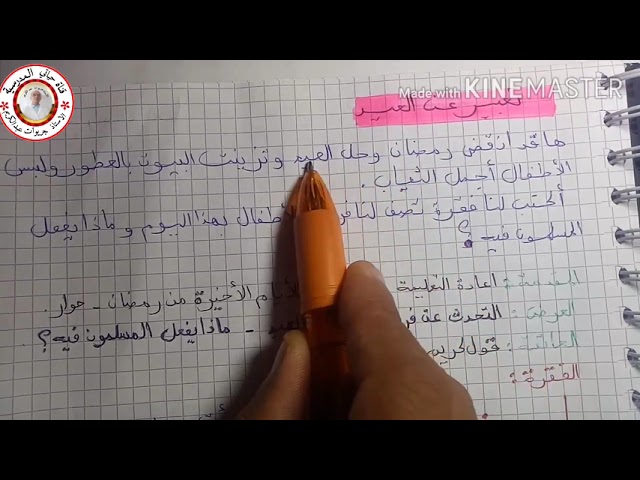 Made with KINEMASTER
قناة حياتي المدرسية
الأستاذ جريوات عبدالكريم
تعبير عن العيد
ها قد انقض رمضان وحل العيد وتزينت البيوت بالعطور ولبس
الأطفال أجمل الثياب.
أكتب لنا فقرة تصف لنا الأطفال بهذا اليوم و ماذا يفعل
المسلمون فيه؟
المقدمة: اعادة التعليمة الأيام الأخيرة من رمضان - حوار.
العرض: التحدث عن العيد - ماذا يفعل المسلمون فيه؟
الخاتمة: قول كريم
الفقرة: